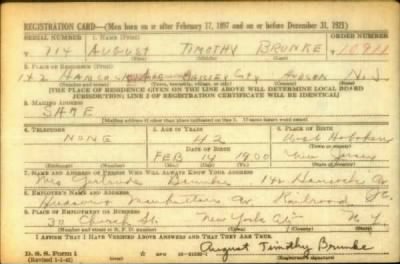 REGISTRATION CARD—(Men born on or after February 17, 1897 and on or before December 31, 1921)
SERIAL NUMBER 1. NAME (Print) ORDER NUMBER
714 AUGUST TIMOTHY BRUNKE
(First) (Middle) (Last)
2. PLACE OF RESIDENCE (Print)
142 HANCOCK AVE JERSEY CITY HUDSON N. J.
(Number and street) (Town, township, village, or city) (County) (State)
[THE PLACE OF RESIDENCE GIVEN ON THE LINE ABOVE WILL DETERMINE LOCAL BOARD
JURISDICTION; LINE 2 OF REGISTRATION CERTIFICATE WILL BE IDENTICAL]
3. MAILING ADDRESS
SAME
[Mailing address if other than place indicated on line 2. If same insert word same]
4. TELEPHONE 5. AGE IN YEARS 6. PLACE OF BIRTH
NONE 42 West Hoboken
DATE OF BIRTH
FEB 14 1900 New Jersey
(Exchange) (Number) (Mo.) (Day) (Yr.) (State or country)
7. NAME AND ADDRESS OF PERSON WHO WILL ALWAYS KNOW YOUR ADDRESS
Mrs Gertrude Brunke 142 Hancock Av
8. EMPLOYER'S NAME AND ADDRESS
Hudson Manhattan Railroad
9. PLACE OF EMPLOYMENT OR BUSINESS
30 Church St. New York City N. Y.
(Number and street or R. F. D. number) (Town) (County) (State)
I AFFIRM THAT I HAVE VERIFIED ABOVE ANSWERS AND THAT THEY ARE TRUE.
D. S. S. Form 1
August Timothy Brunke
(Registrant's signature)